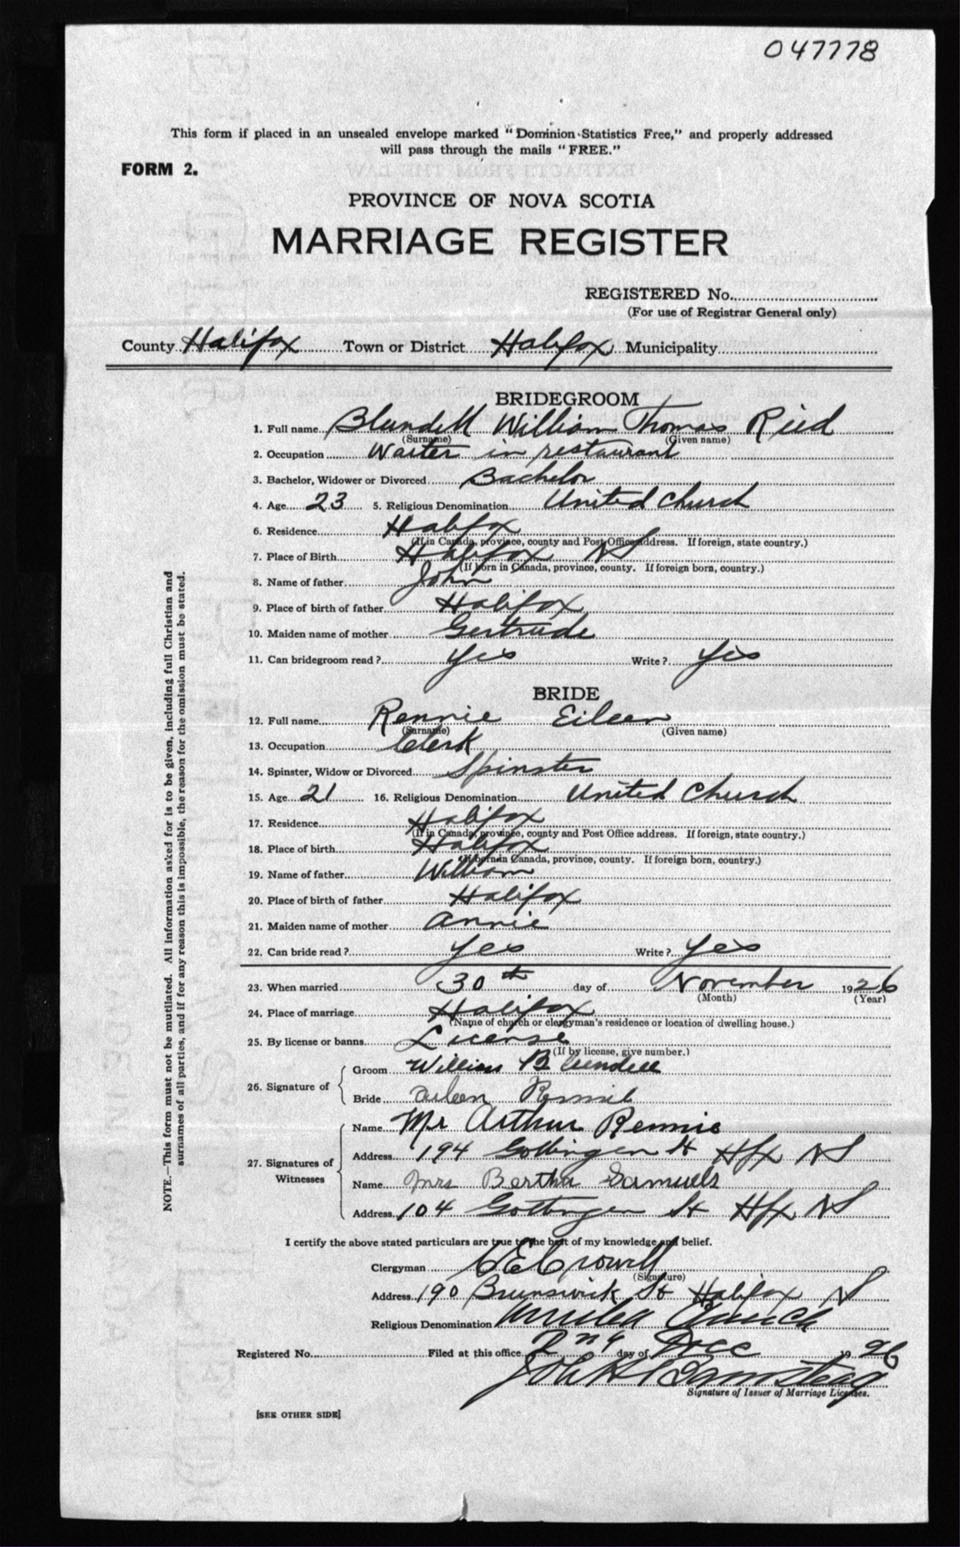 047778
This form if placed in an unsealed envelope marked "Dominion Statistics Free," and properly addressed
will pass through the mails "FREE."
FORM 2.
PROVINCE OF NOVA SCOTIA
MARRIAGE REGISTER
REGISTERED No.
(For use of Registrar General only)
County Halifax Town or District Halifax Municipality
BRIDEGROOM
1. Full name Blundell William Thomas Reid
(Surname) (Given name)
2. Occupation Waiter in restaurant
3. Bachelor, Widower or Divorced Bachelor
4. Age 23 5. Religious Denomination United Church
6. Residence Halifax
(If in Canada, province, county and Post Office address. If foreign, state country.)
7. Place of Birth Halifax NS
(If born in Canada, province, county. If foreign born, country.)
8. Name of father John
9. Place of birth of father Halifax
10. Maiden name of mother Gertrude
11. Can bridegroom read? Yes Write? Yes
BRIDE
12. Full name Rennie Eileen
(Surname) (Given name)
13. Occupation Clerk
14. Spinster, Widow or Divorced Spinster
15. Age 21 16. Religious Denomination United Church
17. Residence Halifax
(If in Canada, province, county and Post Office address. If foreign, state country.)
18. Place of birth Halifax
(If born in Canada, province, county. If foreign born, country.)
19. Name of father William
20. Place of birth of father Halifax
21. Maiden name of mother Annie
22. Can bride read? Yes Write? Yes
23. When married 30th day of November 1926
(Month) (Year)
24. Place of marriage Halifax
(Name of church or clergyman's residence or location of dwelling house.)
25. By license or banns License
(If by license, give number.)
26. Signature of
Groom William Blundell
Bride Eileen Rennie
27. Signatures of Witnesses
Name Mr Arthur Rennie
Address 194 Gottingen St Hfx NS
Name Mrs Bertha Samuels
Address 104 Gottingen St Hfx NS
I certify the above stated particulars are true to the best of my knowledge and belief.
Clergyman C E Crowell
(Signature)
Address 190 Brunswick St Halifax NS
Religious Denomination United Church
Registered No. Filed at this office 2nd day of Dec 1926
John H Barnstead
Signature of Issuer of Marriage Licenses.
[SEE OTHER SIDE]
NOTE.—This form must not be mutilated. All information asked for is to be given, including full Christian and
surnames of all parties, and if for any reason this is impossible, the reason for the omission must be stated.